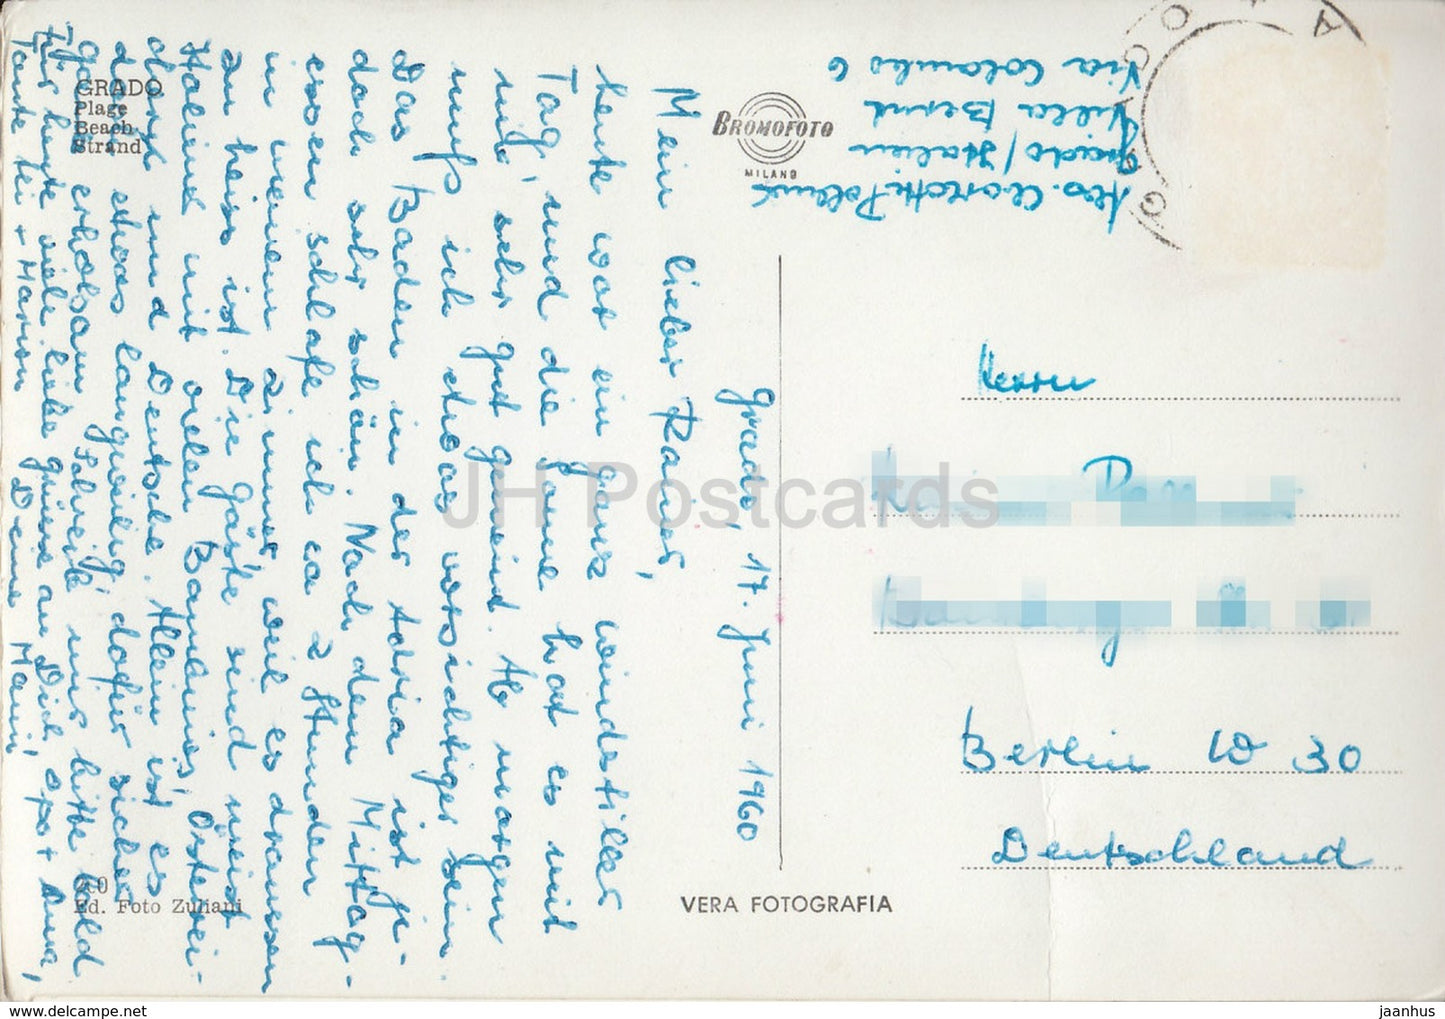 GRADO
Plage
Beach
Strand
BROMOFOTO
MILANO
Grado/Italien
Villa
Via Colombo 6
Grado, 17. Juni 1960
Mein lieber Rainer,
heute war ein ganz windstiller
Tag, und die Sonne hat es mit
mir sehr gut gemeint. Ab morgen
muß ich etwas vorsichtiger sein.
Das Baden in der Adria ist je-
doch sehr schön. Nach dem Mittag-
essen schlafe ich ca 2 Stunden
in meinem Zimmer, weil es draussen
zu heiss ist. Die Gäste sind meist
Italiener mit vielen Bambinis, Österrei-
cher und Deutsche. Allein ist es
doch etwas langweilig, dafür sicher
ganz erholsam. Schreibt mir bitte bald
Für heute viele liebe Grüsse an Dich, Opa + Oma,
Tante + Marion Deine Mami
Herrn
Berlin W 30
Deutschland
Ed. Foto Zuliani
VERA FOTOGRAFIA
JH Postcards
www.delcampe.net
jaanhus